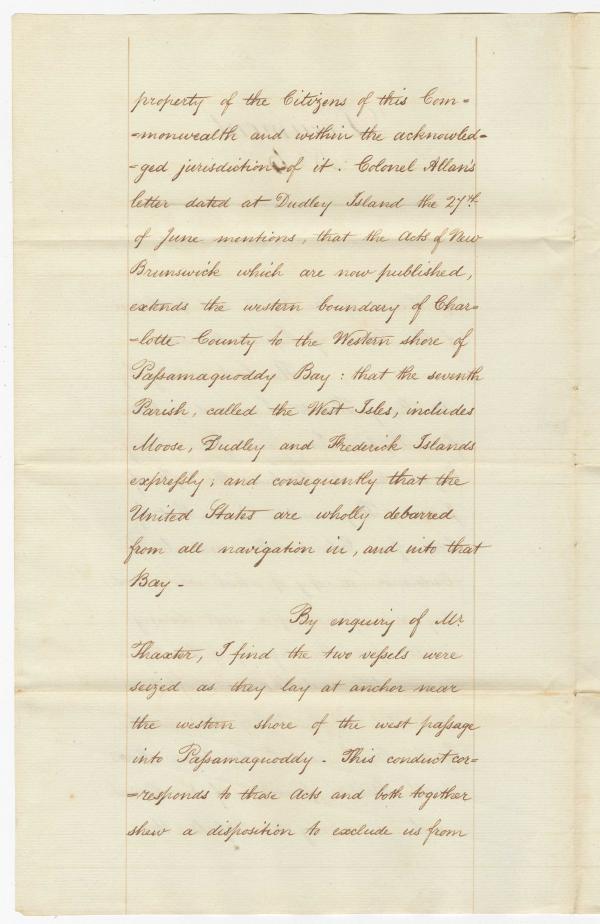 property of the Citizens of this Com=
=monwealth and within the acknowled=
=ged jurisdiction of it. Colonel Allan's
letter dated at Dudley Island the 27th.
of June mentions, that the Acts of New
Brunswick which are now published,
extends the western boundary of Char=
=lotte County to the Western shore of
Paſsamaquoddy Bay: that the seventh
Parish, called the West Isles, includes
Moose, Dudley and Frederick Islands
expreſsly; and consequently that the
United States are wholly debarred
from all navigation in, and into that
Bay -
By enquiry of Mr.
Thaxter, I find the two veſsels were
seized as they lay at anchor near
the western shore of the west paſsage
into Paſsamaquoddy - This conduct cor=
=responds to those Acts and both together
shew a disposition to exclude us from